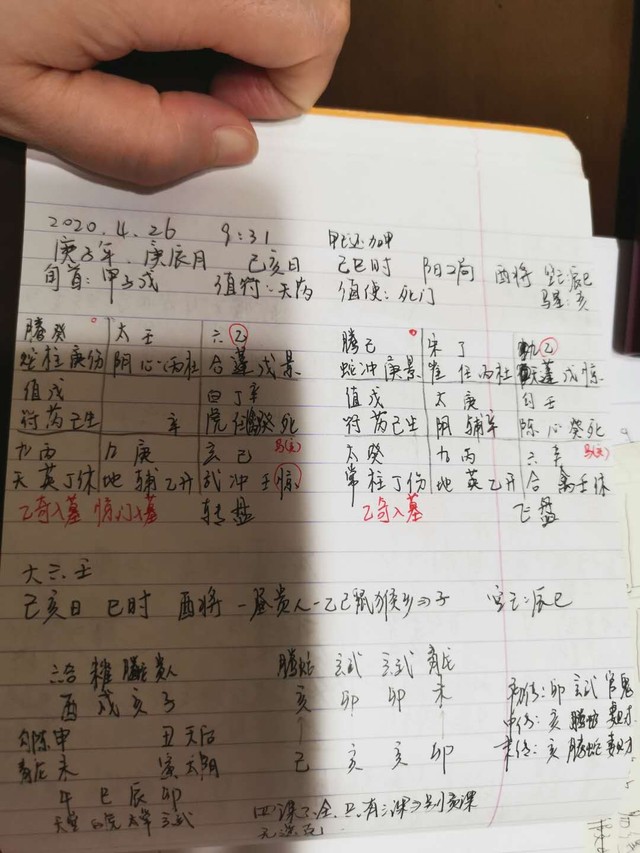 2020.4.26 9:31 甲己还加甲
庚子年 庚辰月 己亥日 己巳时 阳2局 酉将 空亡:辰巳
旬首:甲子戊 值符:天芮 值使:死门 马星:亥
腾癸 太壬 六乙 腾己 朱丁 九乙
蛇柱庚伤 阴心丙杜 合蓬戊景 蛇冲庚景 雀任丙杜 天蓬戊惊
值戊 白丁辛 值戊 太庚 勾壬
符芮己生 辛 虎任癸死 符芮己生 阴辅辛 陈心癸死
九丙 九庚 玄己 马(亥) 太癸 九丙 六辛 马(亥)
天英丁休 地辅乙开 武冲壬惊 常柱丁伤 地英乙开 合禽壬休
乙奇入墓 惊门入墓 转盘 乙奇入墓 飞盘
大六壬
己亥日 巳时 酉将 昼贵人 乙己鼠猴乡⇒子 空亡:辰巳
六合 腾蛇 贵人 腾蛇 玄武 玄武 青龙
酉 戌 亥 子 亥 卯 卯 未 初传:卯 玄武 官鬼
勾陈 申 丑 天后 中传:亥 腾蛇 妻财
青龙 未 寅 太阴 己 亥 亥 卯 末传:亥 腾蛇 妻财
午 巳 辰 卯
天空 白虎 太常 玄武 四课不全,只有三课⇒别责课